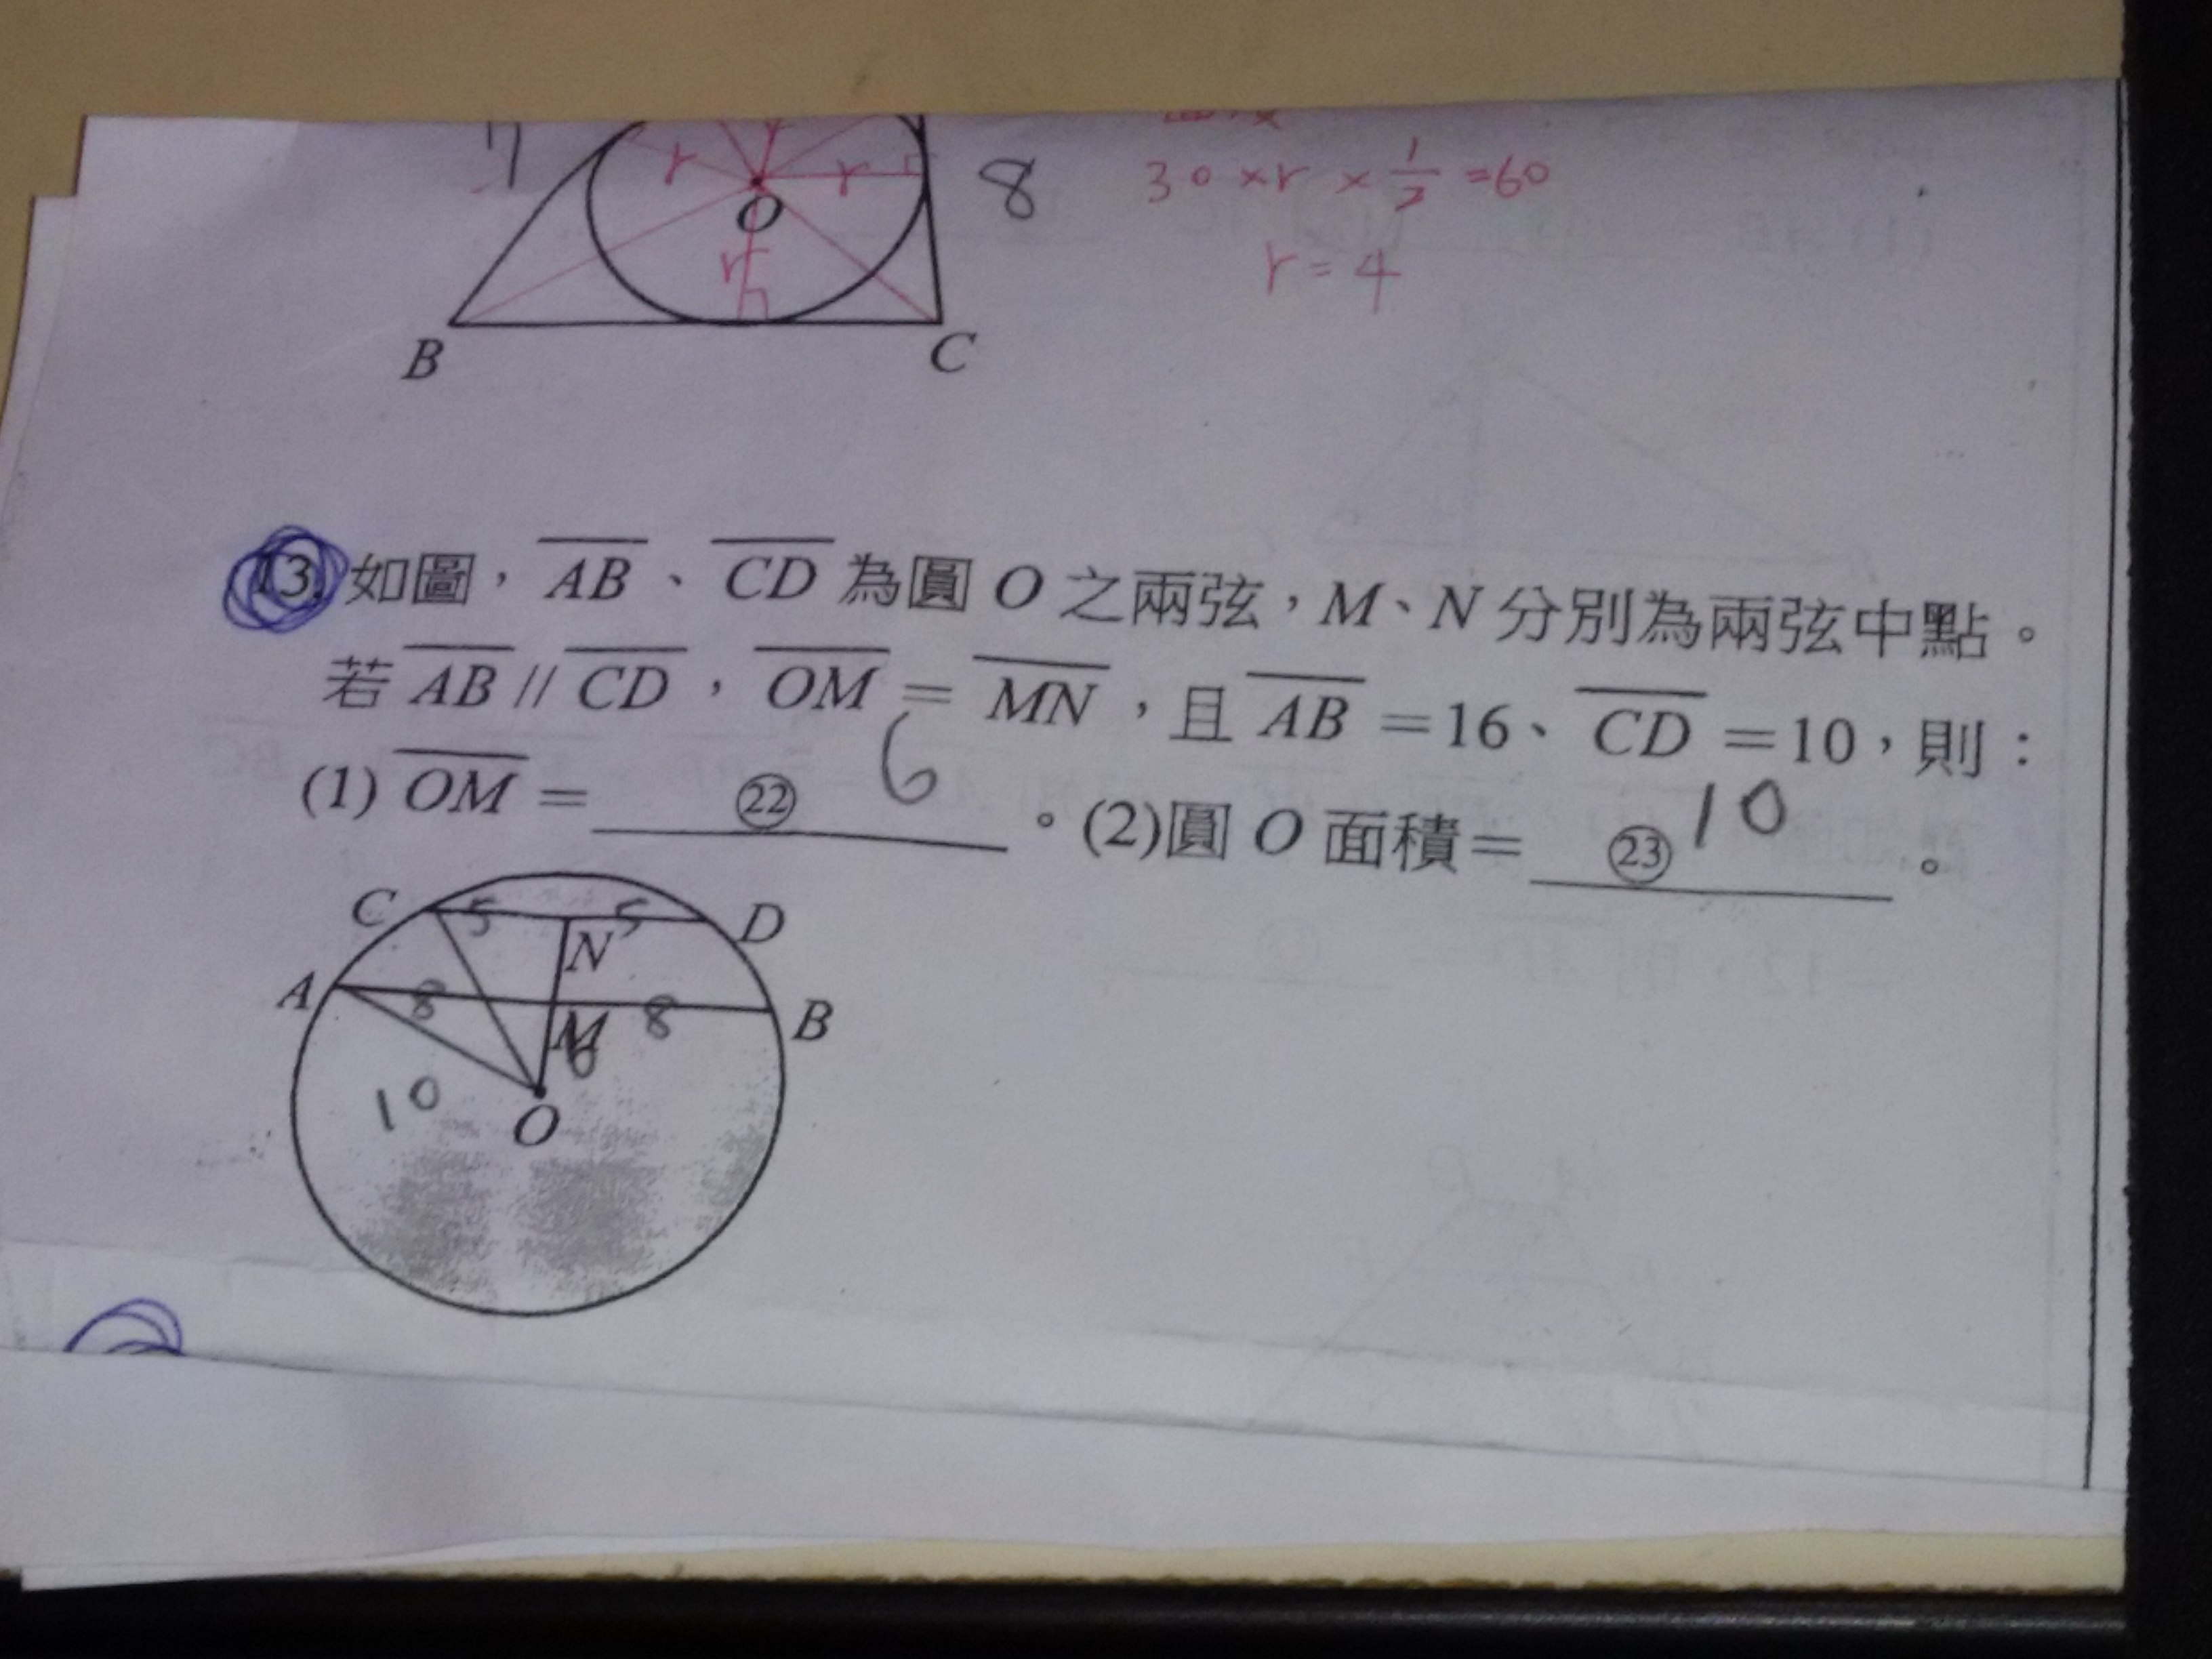 7
r
r
8
30×r×1/2=60
O
r
r=4
B
C
13. 如圖，AB、CD為圓O之兩弦，M、N分別為兩弦中點。
若AB//CD，OM=MN，且AB=16、CD=10，則：
(1) OM=㉒ 6。(2)圓O面積=㉓ 10。
C 5 5 D
N
A 8 8 B
M 6
10
O